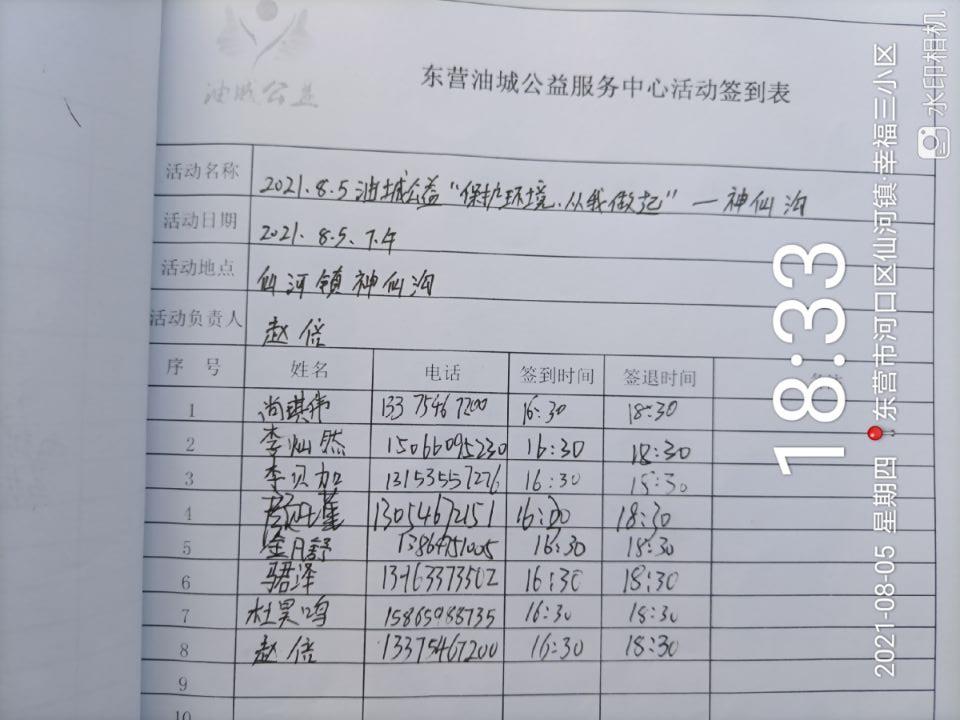 油城公益
东营油城公益服务中心活动签到表
活动名称 2021.8.5油城公益“保护环境.从我做起”—神仙沟
活动日期 2021.8.5、下午
活动地点 仙河镇神仙沟
活动负责人 赵倍
序号 姓名 电话 签到时间 签退时间 备注
1 尚琪伟 13375467200 16:30 18:30
2 李灿然 15066095230 16:30 18:30
3 李贝加 13153557276 16:30 18:30
4 13054672151 18:30
5 金月舒 16:30 18:30
6 骆泽 16:30 18:30
7 杜昊鸣 15865988735 16:30 18:30
8 赵倍 13375467200 16:30 18:30
9
10
18:33
2021-08-05 星期四 东营市河口区仙河镇·幸福三小区
水印相机